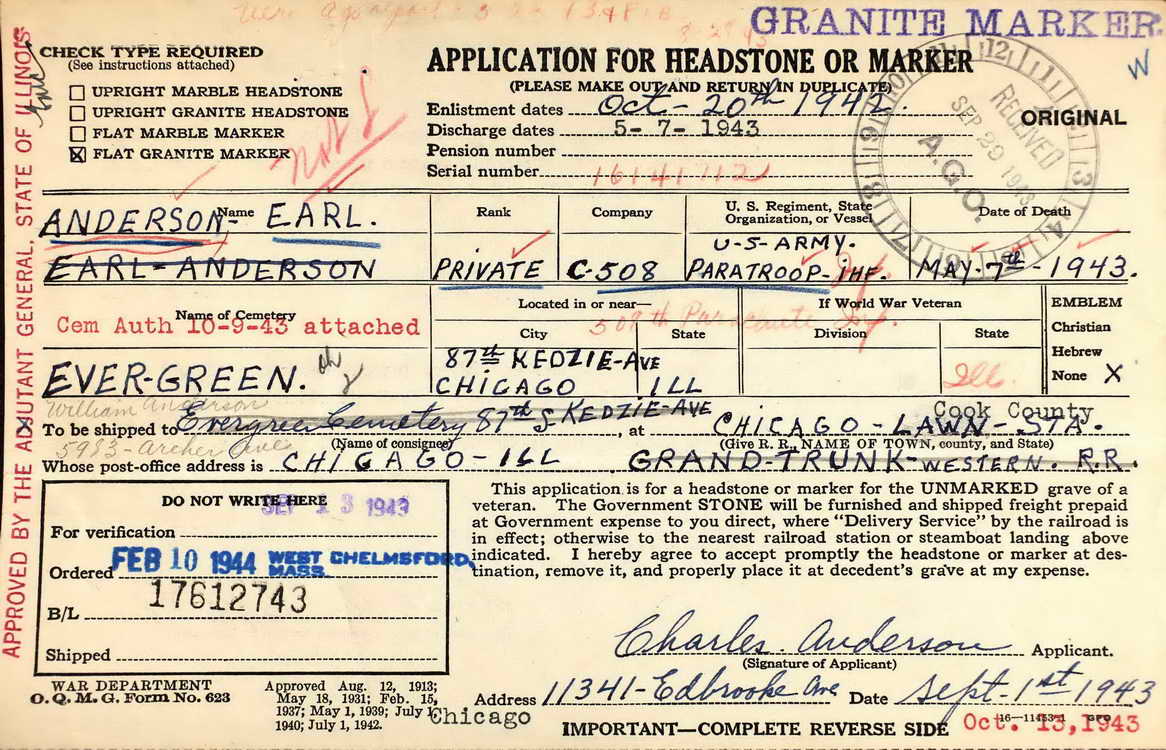 GRANITE MARKER.
CHECK TYPE REQUIRED
(See instructions attached)
UPRIGHT MARBLE HEADSTONE
UPRIGHT GRANITE HEADSTONE
FLAT MARBLE MARKER
FLAT GRANITE MARKER
APPLICATION FOR HEADSTONE OR MARKER
(PLEASE MAKE OUT AND RETURN IN DUPLICATE)
Enlistment dates Oct-20th 1942.
Discharge dates 5-7-1943
Pension number
Serial number 16141712
ORIGINAL
RECEIVED
SEP 29 1943
A.G.O.
APPROVED BY THE ADJUTANT GENERAL, STATE OF ILLINOIS
Name ANDERSON- EARL.
EARL-ANDERSON
Rank
PRIVATE
Company
C-508
U. S. Regiment, State
Organization, or Vessel
U-S-ARMY.
PARATROOP-INF.
Date of Death
MAY-7th-1943.
Name of Cemetery
Cem Auth 10-9-43 attached
EVER-GREEN.
Located in or near—
City
State
87th KEDZIE-AVE
CHICAGO ILL
508th Parachute Inf.
If World War Veteran
Division
State
Ill.
EMBLEM
Christian
Hebrew
None X
William Anderson
To be shipped to Evergreen Cemetery 87th S-KEDZIE-AVE, at CHICAGO-LAWN-STA.
Cook County
(Name of consignee)
(Give R. R., NAME OF TOWN, county, and State)
5983-Archer Ave
Whose post-office address is CHICAGO-ILL GRAND-TRUNK-WESTERN. R.R.
DO NOT WRITE HERE
SEP 13 1943
For verification
Ordered FEB 10 1944 WEST CHELMSFORD, MASS.
B/L 17612743
Shipped
This application is for a headstone or marker for the UNMARKED grave of a
veteran. The Government STONE will be furnished and shipped freight prepaid
at Government expense to you direct, where "Delivery Service" by the railroad is
in effect; otherwise to the nearest railroad station or steamboat landing above
indicated. I hereby agree to accept promptly the headstone or marker at des-
tination, remove it, and properly place it at decedent's grave at my expense.
Charles Anderson Applicant.
(Signature of Applicant)
Address 11341-Edbrooke Ave Date Sept-1st 1943
Chicago
WAR DEPARTMENT
O. Q. M. G. Form No. 623
Approved Aug. 12, 1913;
May 18, 1931; Feb. 15,
1937; May 1, 1939; July 1,
1940; July 1, 1942.
IMPORTANT—COMPLETE REVERSE SIDE
Oct. 13, 1943